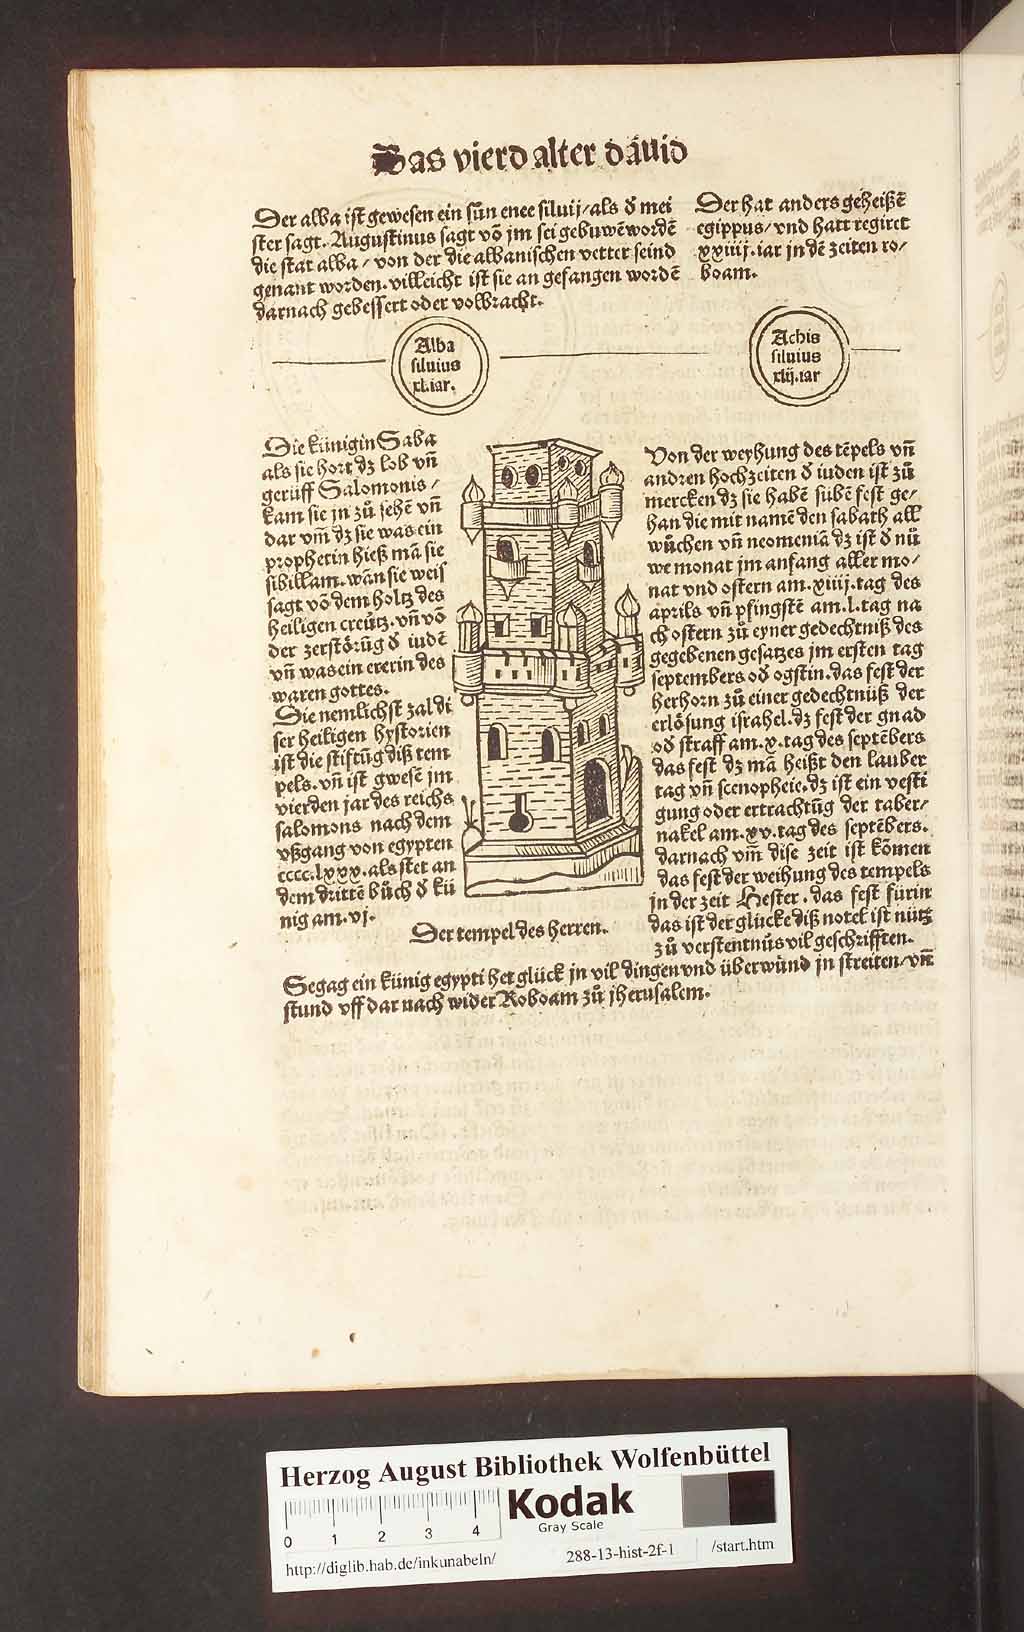 Das vierd alter dauid
Der alba ist gewesen ein sün enee siluij/als d̕ mei
ster sagt. Augustinus sagt võ jm sei gebuwẽ wordẽ
die stat alba/von der die albanischen vetter seind
genant worden. villeicht ist sie an gefangen wordẽ
darnach gebessert oder volbracht.
Der hat anders geheißẽ
egippus/vnd hatt regiret
xxiiij.iar jn dẽ zeiten ro/
boam.
Alba
siluius
xl.iar.
Achis
siluius
xlij.iar
Die künigin Saba
als sie hort dz lob vñ
gerüff Salomonis/
kam sie jn zů jehẽ vñ
dar vm̃ dz sie was ein
prophetin hieß mã sie
sibillam. wãn sie weis
sagt võ dem holtz des
heiligen creütz. vñ võ
der zerstörũg d̕ iudẽ
vñ was ein ererin des
waren gottes.
Die nemlichst zal di
ser heiligen hystorien
ist die stiftũg diß tem
pels. vñ ist gwesẽ jm
vierden jar des reichs
salomons nach dem
vßgang von egypten
cccc.lxxx. als stet an
dem drittẽ bůch d̕ kü
nig am.vj.
Der tempel des herren.
Von der weyhung des tẽpels vñ
andren hochzeiten d̕ iuden ist zů
mercken dz sie habẽ sübẽ fest ge/
han die mit namẽ den sabath all
wůchen vñ neomeniã dz ist d̕ nü
we monat jm anfang aller mo/
nat vnd ostern am.xiiij.tag des
aprils vñ pfingstẽ am.l.tag na
ch ostern zů eyner gedechtniß des
gegebenen gesatzes jm ersten tag
septembers od̕ ogstin. das fest der
herhorn zů einer gedechtnüß der
erlösung israhel. dz fest der gnad
od̕ straff am.x.tag des septẽbers
das fest dz mã heißt den lauber
tag vñ scenopheie. dz ist ein vesti
gung oder ertrachtũg der taber/
nakel am.xv.tag des septẽbers.
darnach vm̃ dise zeit ist kõmen
das fest der weihung des tempels
jn der zeit Hester. das fest fürin
das ist der glücke diß notel ist nütz
zů verstentnüs vil geschrifften.
Segag ein künig egypti het glück jn vil dingen vnd überwünd jn streiten/vñ
stund vff dar nach wider Roboam zů jherusalem.
Herzog August Bibliothek Wolfenbüttel
0 1 2 3 4
Kodak
Gray Scale
http://diglib.hab.de/inkunabeln/ 288-13-hist-2f-1 /start.htm